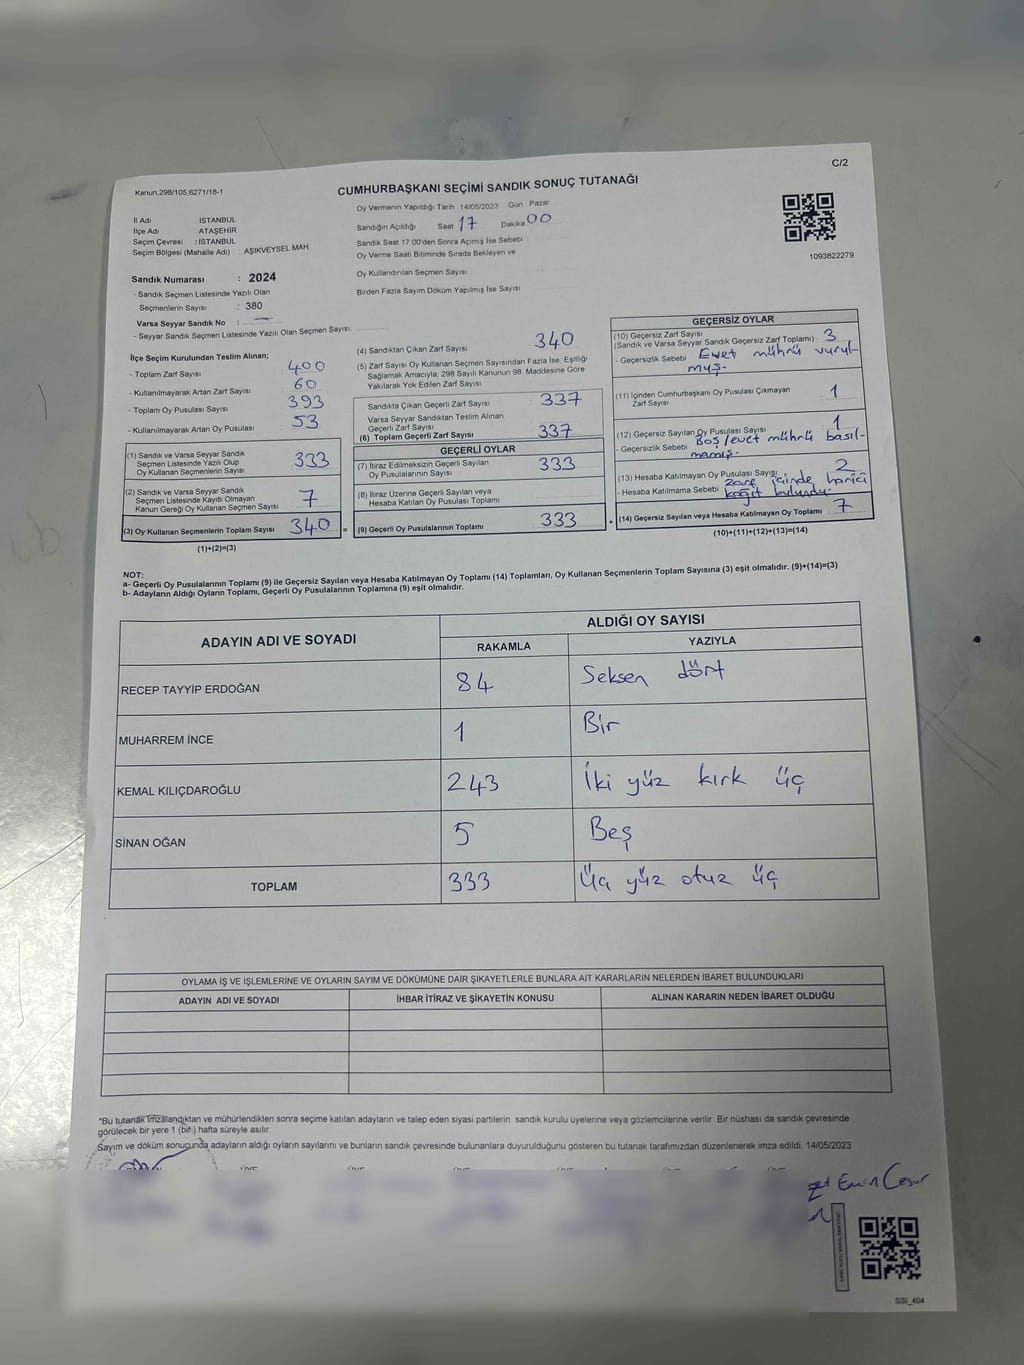 C/2
Kanun;298/105,6271/18-1
CUMHURBAŞKANI SEÇİMİ SANDIK SONUÇ TUTANAĞI
İl Adı İSTANBUL
İlçe Adı ATAŞEHİR
Seçim Çevresi :İSTANBUL
Seçim Bölgesi (Mahalle Adı) : AŞIKVEYSEL MAH.
Sandık Numarası : 2024
- Sandık Seçmen Listesinde Yazılı Olan
Seçmenlerin Sayısı : 380
Varsa Seyyar Sandık No : —
- Seyyar Sandık Seçmen Listesinde Yazılı Olan Seçmen Sayısı:
Oy Vermenin Yapıldığı Tarih :14/05/2023 Gün Pazar
Sandığın Açıldığı Saat 17 Dakika 00
Sandık Saat 17:00'den Sonra Açımış İse Sebebi
Oy Verme Saati Bitiminde Sırada Bekleyen ve
Oy Kullandırılan Seçmen Sayısı
Birden Fazla Sayım Döküm Yapılmış İse Sayısı
1093822279
İlçe Seçim Kurulundan Teslim Alınan;
- Toplam Zarf Sayısı 400
- Kullanılmayarak Artan Zarf Sayısı 60
- Toplam Oy Pusulası Sayısı 393
- Kullanılmayarak Artan Oy Pusulası 53
(1) Sandık ve Varsa Seyyar Sandık
Seçmen Listesinde Yazılı Olup
Oy Kullanan Seçmenlerin Sayısı 333
(2) Sandık ve Varsa Seyyar Sandık
Seçmen Listesinde Kayıtlı Olmayan
Kanun Gereği Oy Kullanan Seçmen Sayısı 7
(3) Oy Kullanan Seçmenlerin Toplam Sayısı 340 =
(1)+(2)=(3)
(4) Sandıktan Çıkan Zarf Sayısı 340
(5) Zarf Sayısı Oy Kullanan Seçmen Sayısından Fazla İse, Eşitliği
Sağlamak Amacıyla, 298 Sayılı Kanunun 98. Maddesine Göre
Yakılarak Yok Edilen Zarf Sayısı
Sandıkta Çıkan Geçerli Zarf Sayısı 337
Varsa Seyyar Sandıktan Teslim Alınan
Geçerli Zarf Sayısı
(6) Toplam Geçerli Zarf Sayısı 337
GEÇERLİ OYLAR
(7) İtiraz Edilmeksizin Geçerli Sayılan
Oy Pusulalarının Sayısı 333
(8) İtiraz Üzerine Geçerli Sayılan veya
Hesaba Katılan Oy Pusulası Toplamı
(9) Geçerli Oy Pusulalarının Toplamı 333 +
GEÇERSİZ OYLAR
(10) Geçersiz Zarf Sayısı 3
(Sandık ve Varsa Seyyar Sandık Geçersiz Zarf Toplamı)
- Geçersizlik Sebebi Evet mührü vurul-
muş.
(11) İçinden Cumhurbaşkanı Oy Pusulası Çıkmayan
Zarf Sayısı 1
(12) Geçersiz Sayılan Oy Pusulası Sayısı 1
- Geçersizlik Sebebi Boş/evet mührü basıl-
mamış.
(13) Hesaba Katılmayan Oy Pusulası Sayısı 2
- Hesaba Katılmama Sebebi zarf içinde harici
kağıt bulundu.
(14) Geçersiz Sayılan veya Hesaba Katılmayan Oy Toplamı 7
(10)+(11)+(12)+(13)=(14)
NOT:
a- Geçerli Oy Pusulalarının Toplamı (9) ile Geçersiz Sayılan veya Hesaba Katılmayan Oy Toplamı (14) Toplamları, Oy Kullanan Seçmenlerin Toplam Sayısına (3) eşit olmalıdır. (9)+(14)=(3)
b- Adayların Aldığı Oyların Toplamı, Geçerli Oy Pusulalarının Toplamına (9) eşit olmalıdır.
ADAYIN ADI VE SOYADI
ALDIĞI OY SAYISI
RAKAMLA YAZIYLA
RECEP TAYYİP ERDOĞAN 84 Seksen dört
MUHARREM İNCE 1 Bir
KEMAL KILIÇDAROĞLU 243 İki yüz kırk üç
SİNAN OĞAN 5 Beş
TOPLAM 333 Üç yüz otuz üç
OYLAMA İŞ VE İŞLEMLERİNE VE OYLARIN SAYIM VE DÖKÜMÜNE DAİR ŞİKAYETLERLE BUNLARA AİT KARARLARIN NELERDEN İBARET BULUNDUKLARI
ADAYIN ADI VE SOYADI İHBAR İTİRAZ VE ŞİKAYETİN KONUSU ALINAN KARARIN NEDEN İBARET OLDUĞU
*Bu tutanak imzalandıktan ve mühürlendikten sonra seçime katılan adayların ve talep eden siyasi partilerin sandık kurulu üyelerine veya gözlemcilerine verilir. Bir nüshası da sandık çevresinde
görülecek bir yere 1 (bir) hafta süreyle asılır.
Sayım ve döküm sonucunda adayların aldığı oyların sayılarını ve bunların sandık çevresinde bulunanlara duyurulduğunu gösteren bu tutanak tarafımızdan düzenlenerek imza edildi. 14/05/2023
Emin Cesur
SSI_404